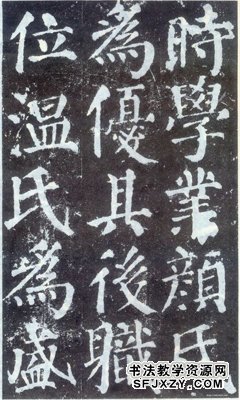 時學業顏氏
為優其後職
位溫氏為盛
书法教学资源网
SFJXZY.COM